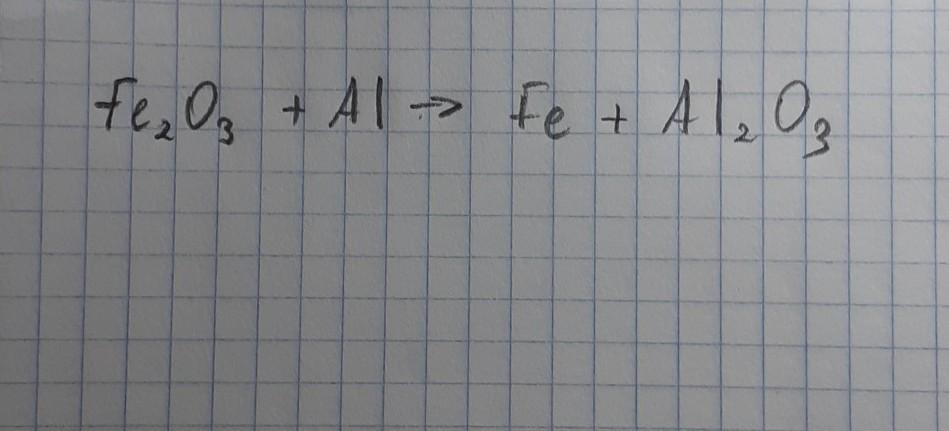 Fe₂O₃ + Al → Fe + Al₂O₃